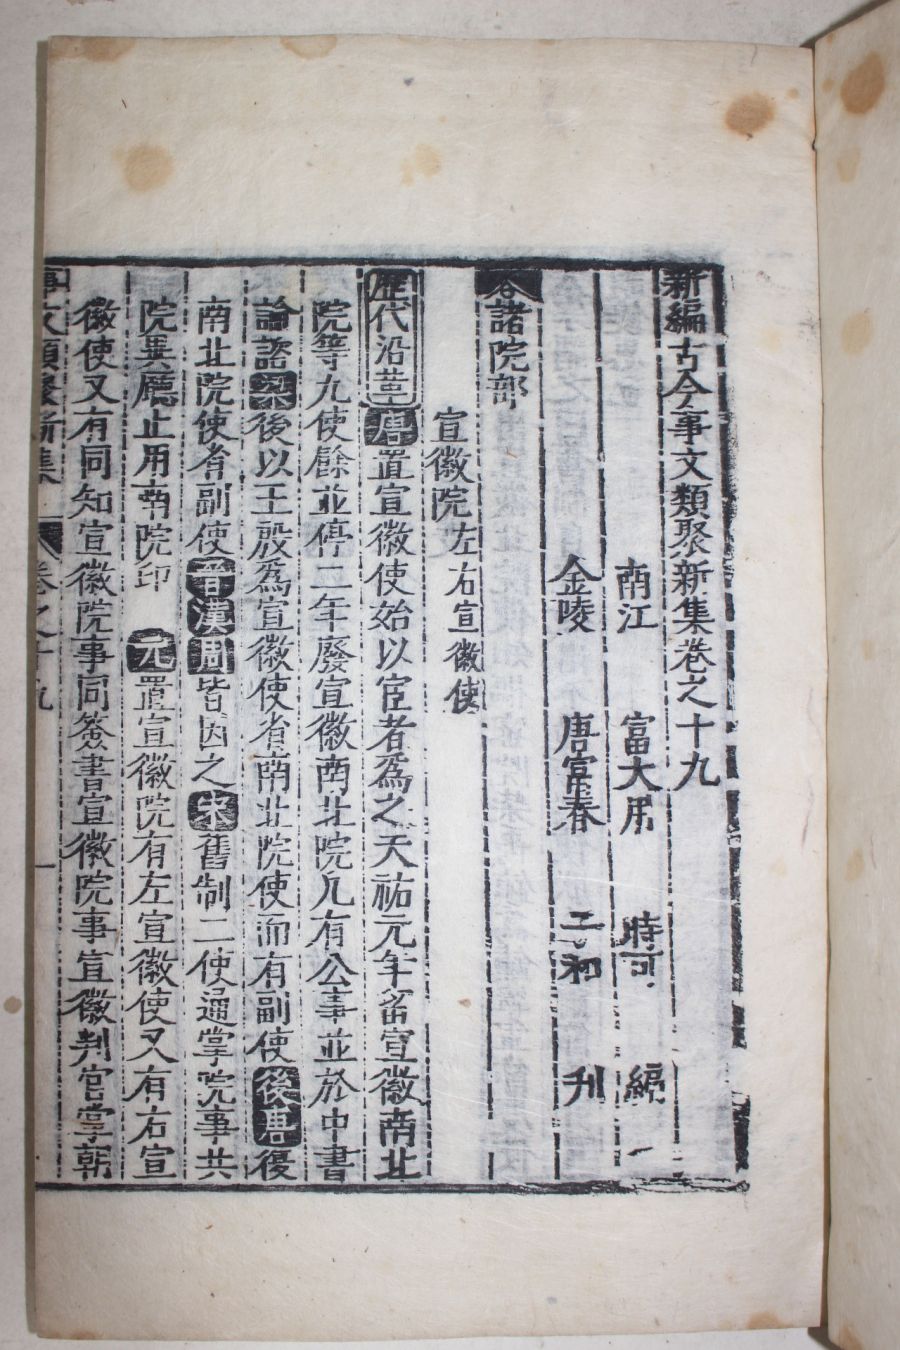 新編古今事文類聚新集卷之十九
南江 富大用 時可 編
金陵 唐富春 子和 刊
各諸院部
宣徽院左右宣徽使
歷代沿革唐置宣徽使始以宦者爲之天祐元年畱宣徽南北
院等九使餘並停二年廢宣徽南北院凡有公事並於中書
論諮梁後以王殷爲宣徽使省南北院使而有副使後唐復
南北院使省副使晉漢周皆因之宋舊制二使通掌院事共
院異廳止用南院印 元置宣徽院有左宣徽使又有右宣
徽使又有同知宣徽院事同簽書宣徽院事宣徽判官掌朝
事文類聚新集 卷之十九 一